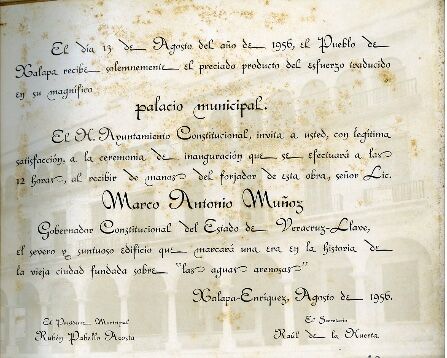 El día 13 de Agosto del año de 1956, el Pueblo de
Xalapa recibe solemnemente el preciado producto del esfuerzo traducido
en su magnífico
palacio municipal.
El H. Ayuntamiento Constitucional, invita a usted, con legítima
satisfacción, a la ceremonia de inauguración que se efectuará a las
12 horas, al recibir de manos del forjador de esta obra, señor Lic.
Marco Antonio Muñoz
Gobernador Constitucional del Estado de Veracruz-Llave,
el severo y suntuoso edificio que marcará una era en la historia de
la vieja ciudad fundada sobre "las aguas arenosas"
Xalapa-Enríquez, Agosto de 1956.
El Presidente Municipal El Secretario
Rubén Pabello Acosta Raúl de la Huerta.